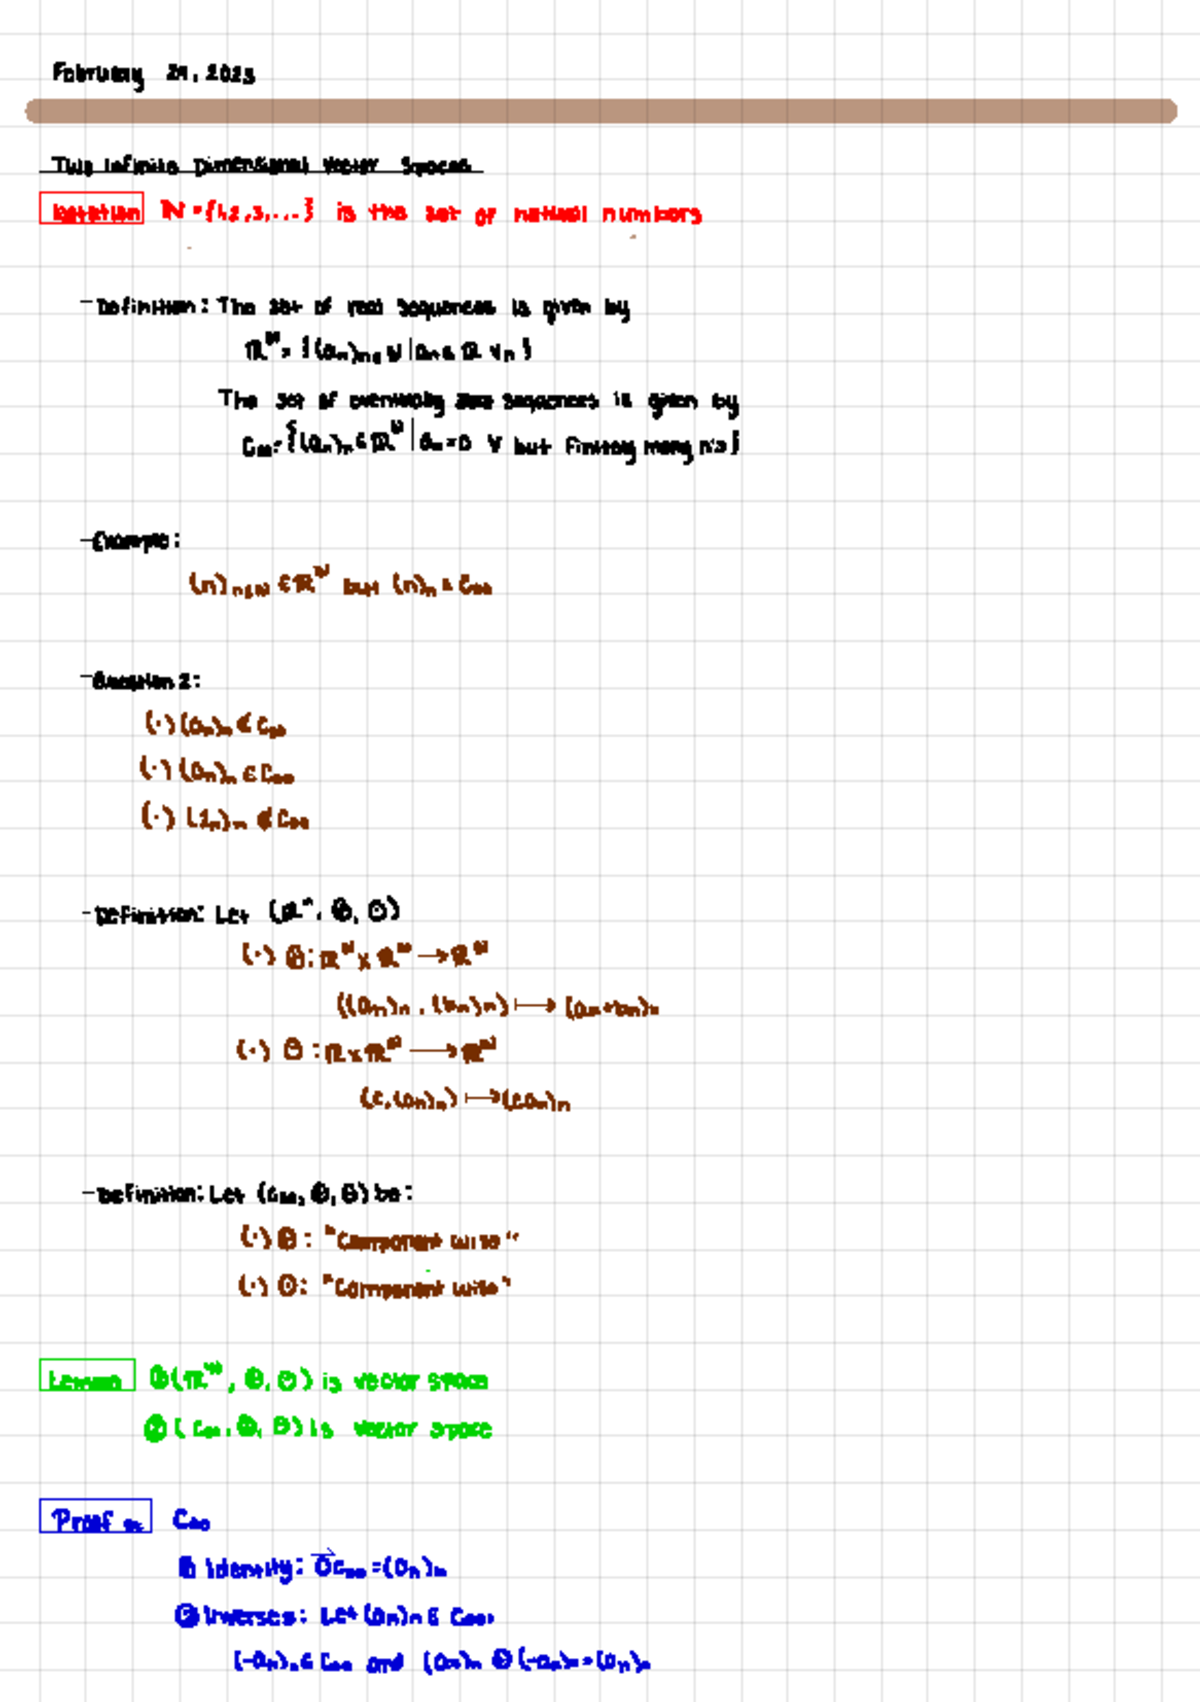 February 21, 2023
Two Infinite Dimensional Vector Spaces
Notation ℕ = {1,2,3,...} is the set of natural numbers
- Definition: The set of real sequences is given by
ℝ^ℕ = {(aₙ)ₙ∈ℕ | aₙ ∈ ℝ ∀n}
The set of eventually zero sequences is given by
C₀₀ = {(aₙ)ₙ ∈ ℝ^ℕ | aₙ = 0 ∀ but finitely many n's}
- Example:
(n)ₙ∈ℕ ∈ ℝ^ℕ but (n)ₙ C₀₀
- Question 2:
(·) (aₙ)ₙ ∉ C₀₀
(·) (0ₙ)ₙ ∈ C₀₀
(·) (1ₙ)ₙ ∉ C₀₀
- Definition: Let (ℝ^ℕ, ⊕, ⊙)
(·) ⊕: ℝ^ℕ x ℝ^ℕ → ℝ^ℕ
((aₙ)ₙ, (bₙ)ₙ) ⟼ (aₙ+bₙ)ₙ
(·) ⊙: ℝ x ℝ^ℕ → ℝ^ℕ
(c,(aₙ)ₙ) ⟼ (caₙ)ₙ
- Definition: Let (C₀₀, ⊕, ⊙) be:
(·) ⊕: "Component wise"
(·) ⊙: "Component wise"
Lemma ① (ℝ^ℕ, ⊕, ⊙) is vector space
② (C₀₀, ⊕, ⊙) is vector space
Proof C₀₀
① Identity: 0⃗C₀₀ = (0ₙ)ₙ
② Inverses: Let (aₙ)ₙ ∈ C₀₀,
(-aₙ)ₙ ∈ C₀₀ and (aₙ)ₙ ⊕ (-aₙ)ₙ = (0ₙ)ₙ